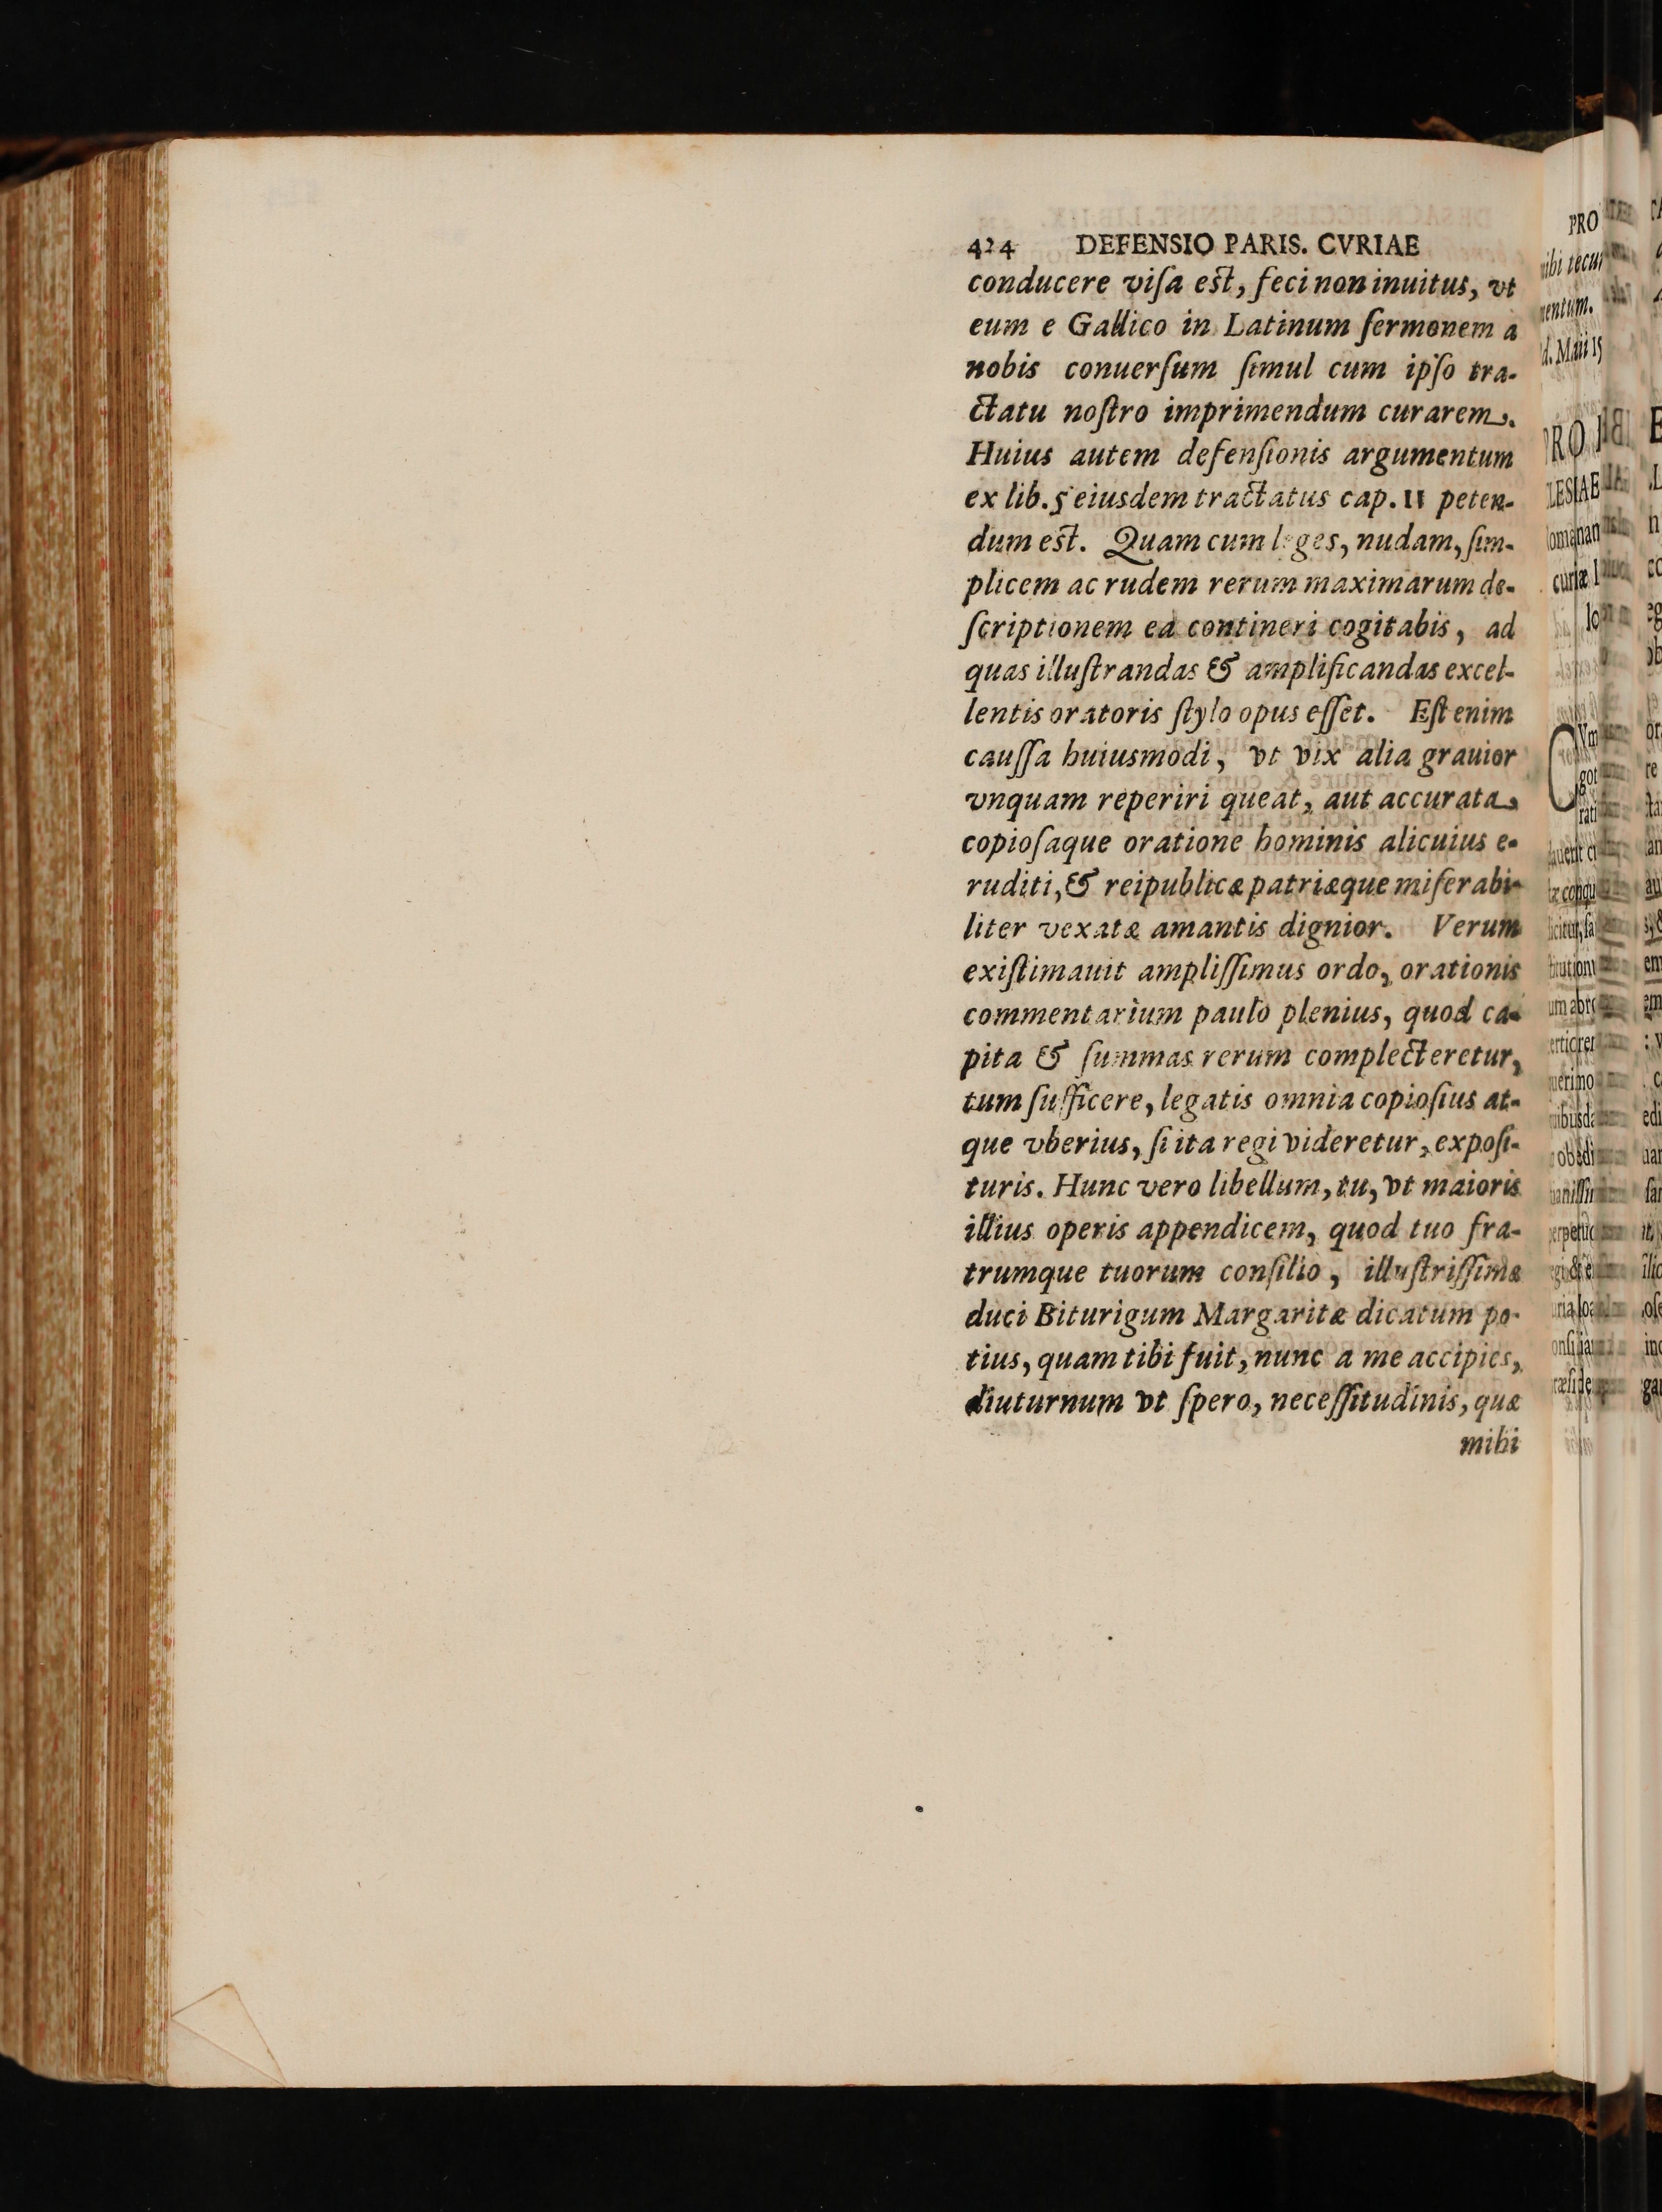 424 DEFENSIO PARIS. CVRIAE
conducere viſa est, feci non inuitus, vt
eum e Gallico in Latinum ſermonem a
nobis conuerſum ſimul cum ipſo tra-
ctatu noſtro imprimendum curarem.
Huius autem defenſionis argumentum
ex lib. 5 eiusdem tractatus cap. 11 peten-
dum est. Quam cum leges, nudam, ſim-
plicem ac rudem rerum maximarum de-
ſcriptionem ea contineri cogitabis, ad
quas illuſtrandas & amplificandas excel-
lentis oratoris ſtylo opus eſſet. Eſt enim
cauſſa huiusmodi, vt vix alia grauior
vnquam reperiri queat, aut accurata
copioſaque oratione hominis alicuius e-
ruditi, & reipublicæ patriæque miſerabi-
liter vexatæ amantis dignior. Verum
exiſtimauit ampliſſimus ordo, orationis
commentarium paulo plenius, quod ca-
pita & ſummas rerum complecteretur,
tum ſufficere, legatis omnia copioſius at-
que vberius, ſi ita regi videretur, expoſi-
turis. Hunc vero libellum, tu, vt maioris
illius operis appendicem, quod tuo fra-
trumque tuorum conſilio, illuſtriſſimæ
duci Biturigum Margaritæ dicatum po-
tius, quam tibi fuit, nunc a me accipies,
diuturnum vt ſpero, neceſſitudinis, quæ
mihi